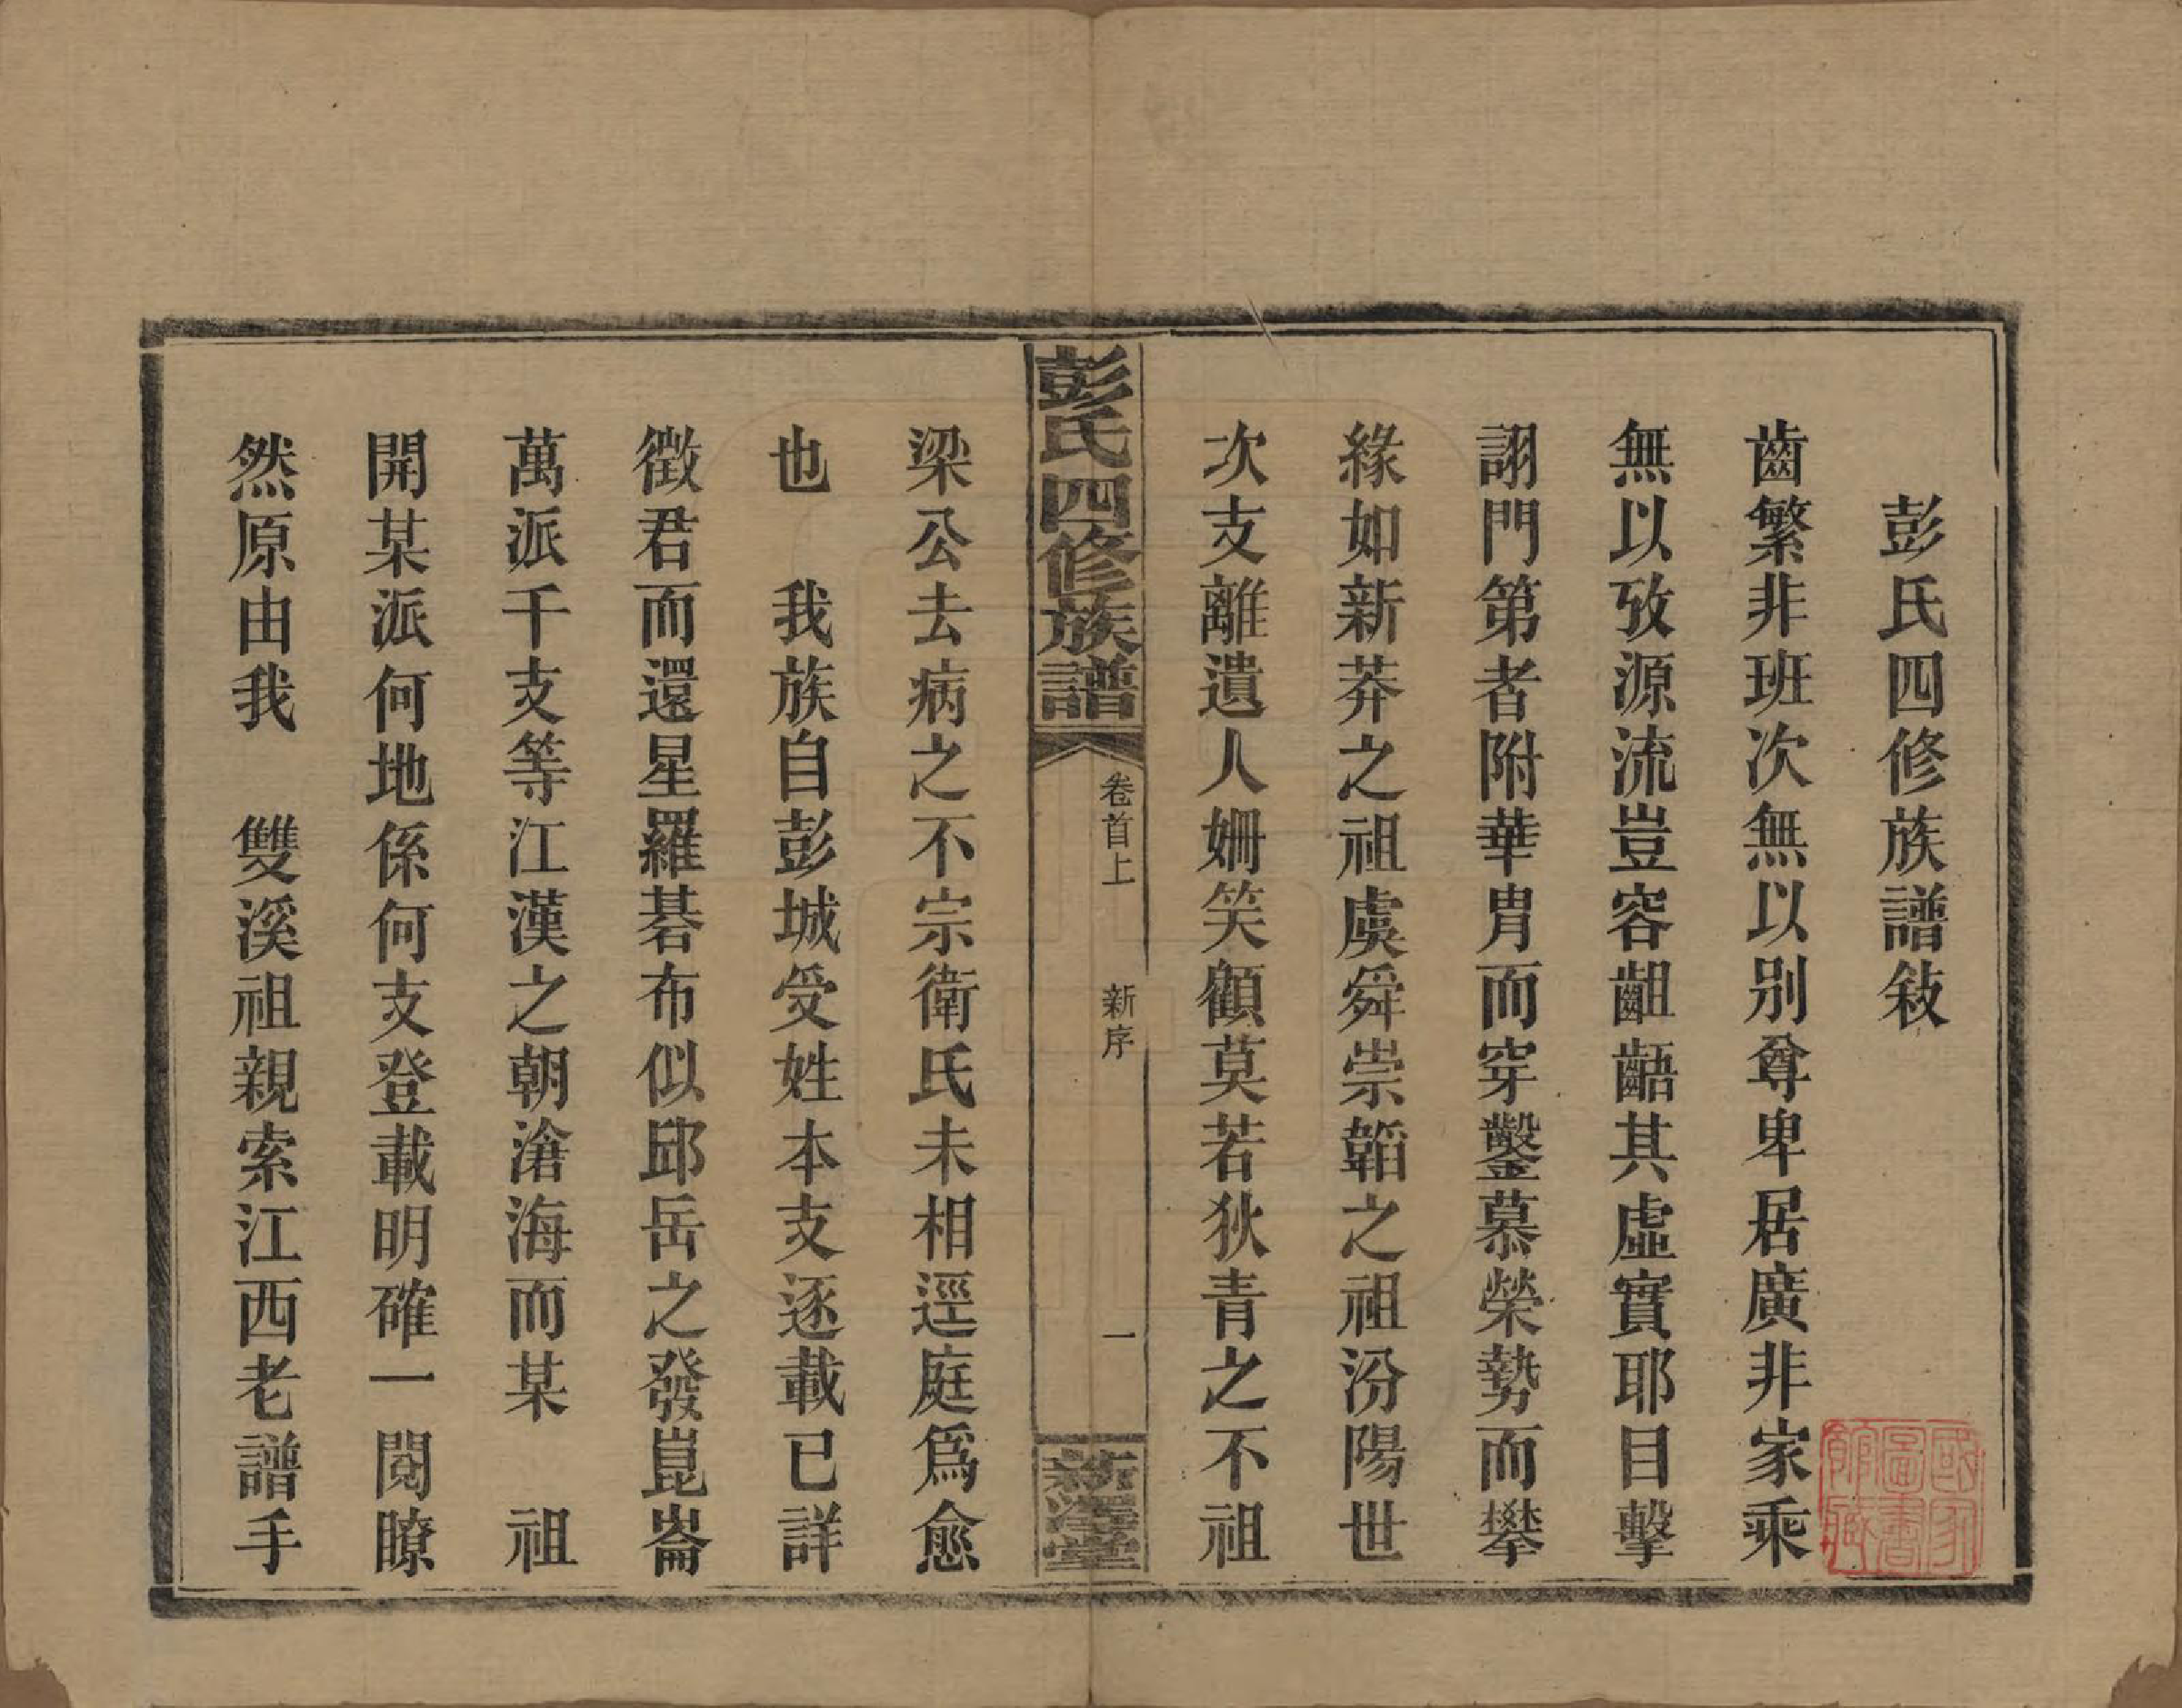 彭氏四修族譜敍
齒繁非班次無以別尊卑居廣非家乘
無以攷源流豈容齟齬其虛實耶目擊
詡門第者附華胄而穿鑿慕榮勢而攀
緣如新莽之祖虞舜崇韜之祖汾陽世
次支離遺人姍笑顧莫若狄青之不祖
彭氏四修族譜
卷首上
新序
一
梁公去病之不宗衛氏未相逕庭爲愈
也　我族自彭城受姓本支逐載已詳
徵君而還星羅碁布似邱岳之發崑崙
萬派千支等江漢之朝滄海而某　祖
開某派何地係何支登載明確一閱瞭
然原由我　雙溪祖親索江西老譜手
國家圖書館藏